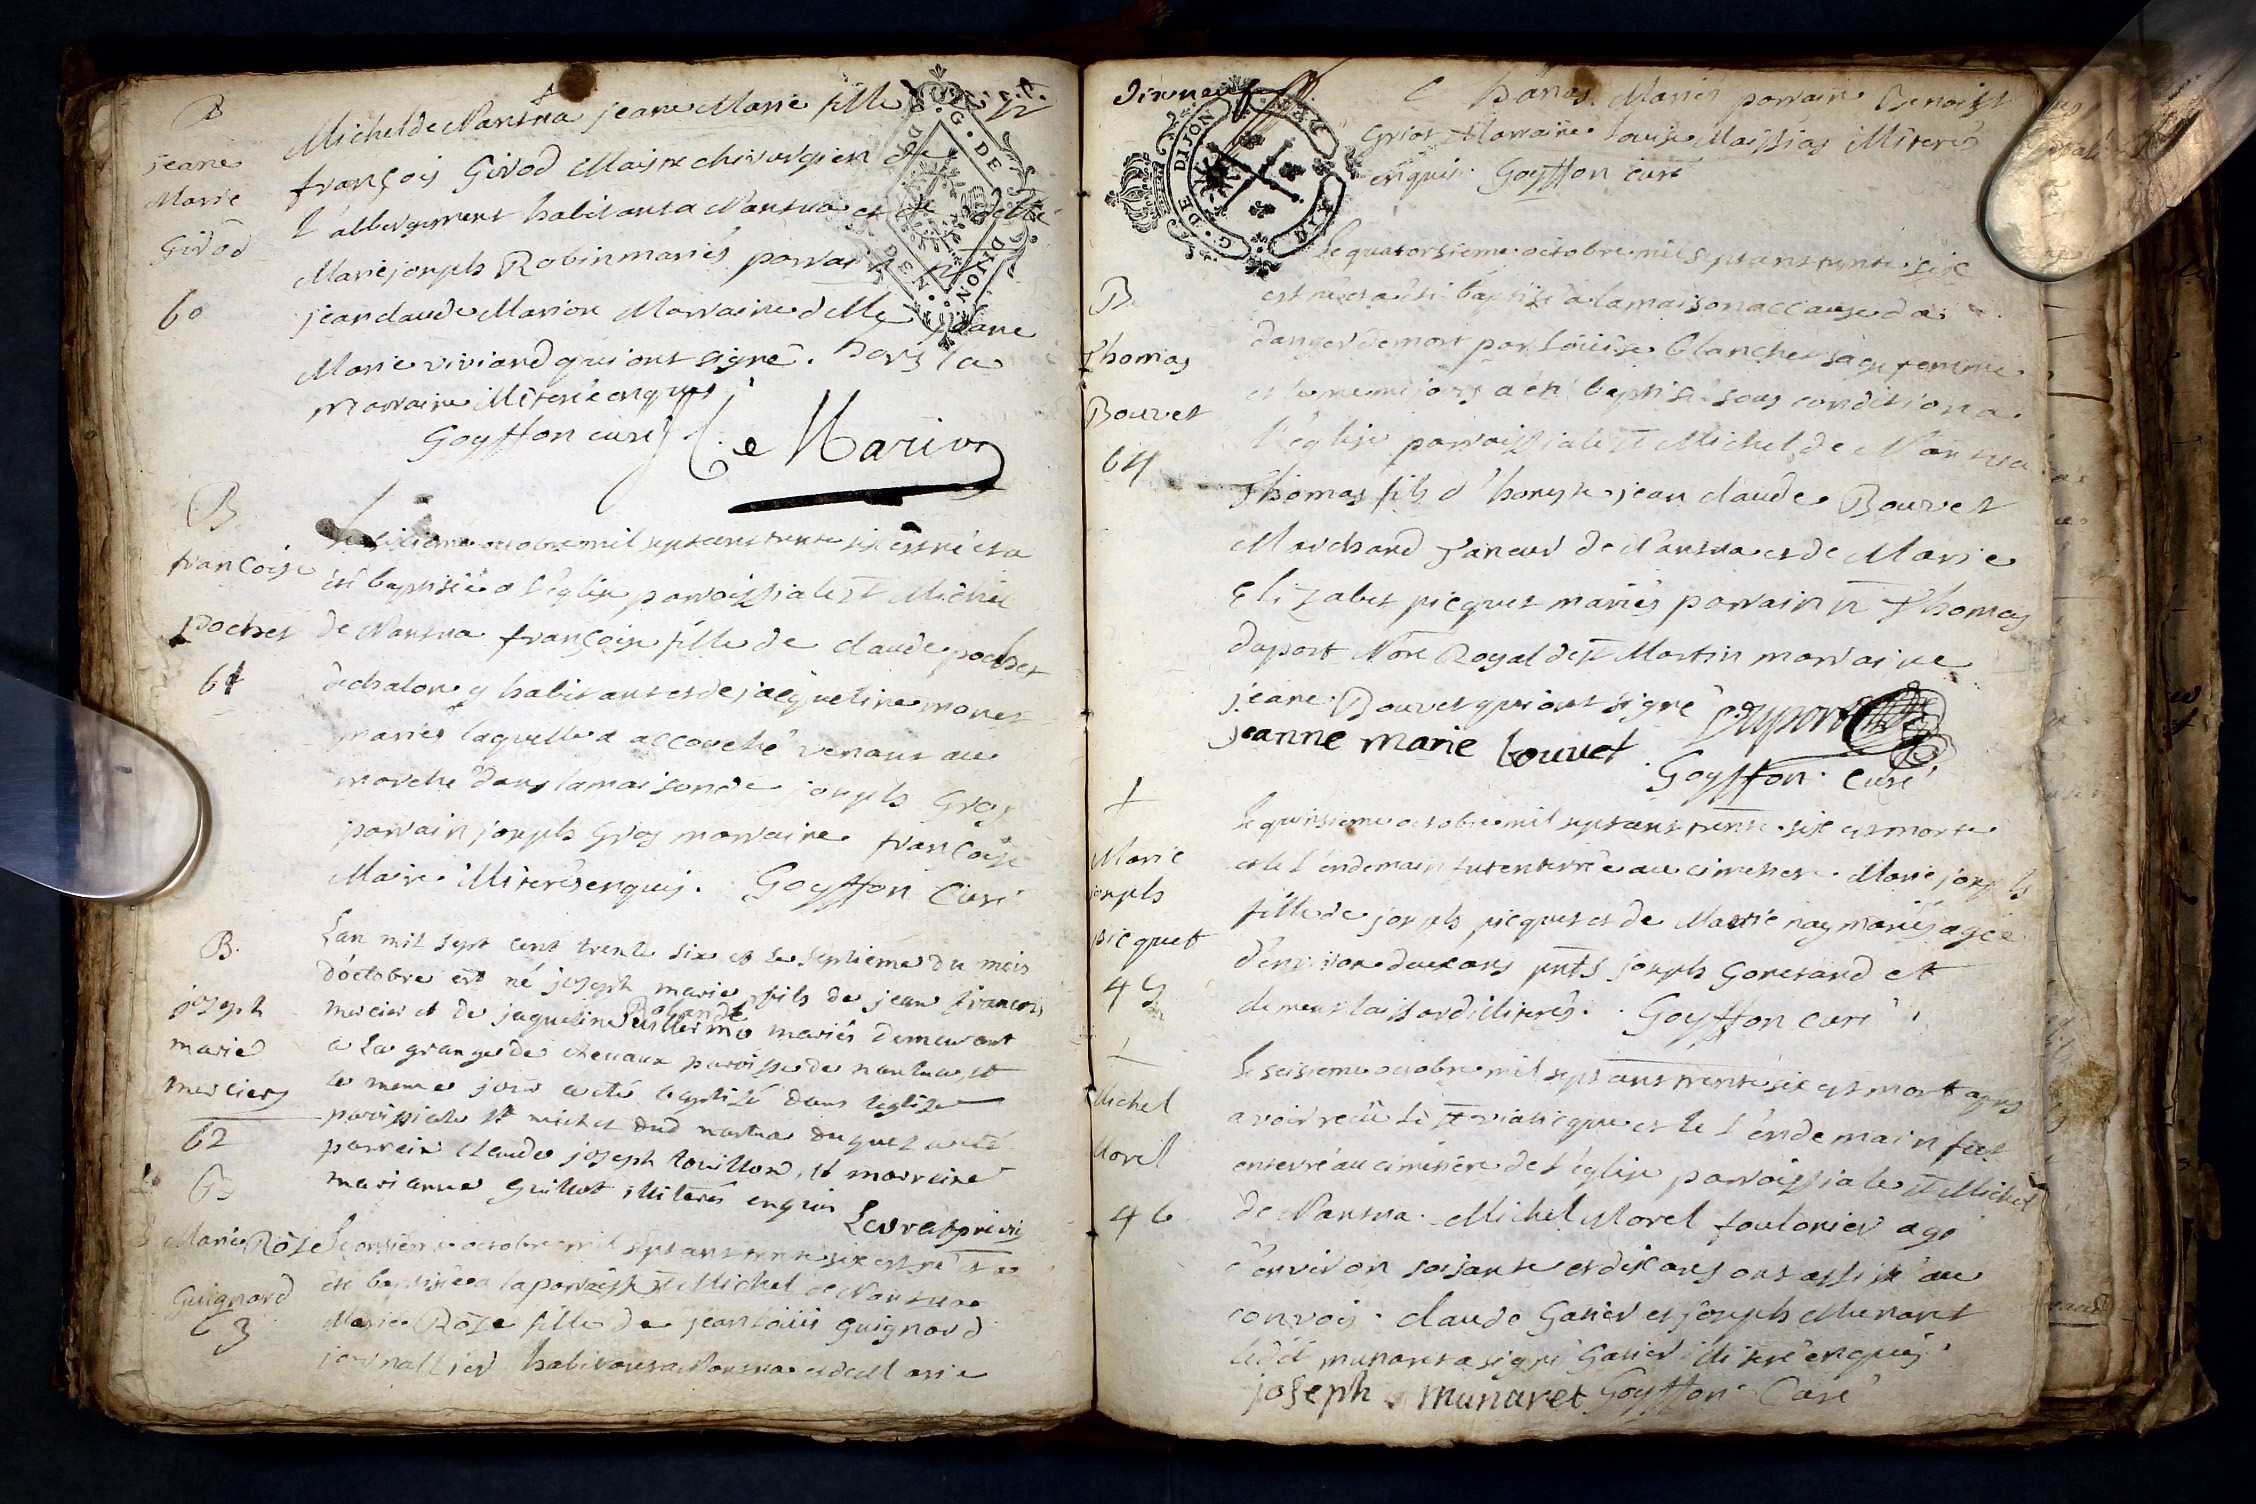 B
jeane
Marie
Girod
60
Michel de Nantua jeane Marie fille
françois Girod Maistre chirurgien de
l'abbergement habitant a Nantua et de
Marie joseph Robin mariés parrain
jean claude Marion Marraine dlle jeane
Marie viviand qui ont signé. hors la
marraine illiterée enquis
Goyffon curé
Marion
B
françoise
pochet
61
Le octobre mil sept cent trente six est née et a
été baptisée a l'églize parroissiale st Michel
de Nantua françoise fille de claude pochet
de chalon y habitant et de jacqueline monet
mariés laquelle a accouché venant au
marché dans la maison de joseph Gros
parrain joseph Gros marraine françoise
Maire illiterés enquis. Goyffon Curé
B.
joseph
marie
merciers
62
Lan mil sept cent trente six et le septieme du mois
d'octobre est né joseph marie fils de jean francois
mercier et de jaqueline mariés demeurant
a la grange de chevaux paroisse de nantua, et
le meme jour a eté baptisé dans leglise
paroissiale st michel dud nantua duquel a eté
parrein claude joseph touillon, et marreine
marianne Guillot illiterés enquis
B
Marie Rose
Guignard
63
Le onsieme octobre mil sept cent trente six est née et a
été baptisée a la parroisse st Michel de Nantua
Marie Rose fille de jean Louis Guignard
journallier habitant a Nantua et de Marie
dixneuf
G. DE DIJON
Mariés parrain Benoist
Marraine Louise Maissiat illiterés
enquis. Goyffon curé
B.
Thomas
Bouvet
64
Le quatorsieme octobre mil sept cent trente six
est né et a été baptisé a la maison a cause du
danger de mort par Loüise blanchet sage femme
et le meme jour a été baptisé sous condition a
l'églize parroissiale st Michel de Nantua
Thomas fils d'honeste jean claude Bouvet
Marchand Taneur de Nantua et de Marie
Elizabet picquet mariés parrain sr Thomas
duport Nore Royal de st Martin marraine
jeane Bouvet qui ont signé Duport
jeanne marie bouvet
Goyffon curé
†
Marie
joseph
picquet
45
Le quinsieme octobre mil sept cent trente six est morte
et le l'endemain fut enterrée au cimetiere Marie joseph
fille de joseph picquet et de Marie nay mariés agée
d'environ deux ans pnts joseph Gonerand et
clement laissard illiterés. Goyffon curé
†
Michel
Morel
46
Le seisieme octobre mil sept cent trente six est mort apres
avoir reçû le st viatique et le l'endemain fut
enterré au cimetière de l'églize parroissiale st Michel
de Nantua. Michel Morel foulonier agé
d'environ soisante et dix ans ont assisté au
convois. claude Ganier et joseph Munaret
ledit munaret a signé Ganier illiteré enquis
joseph munaret Goyffon Curé